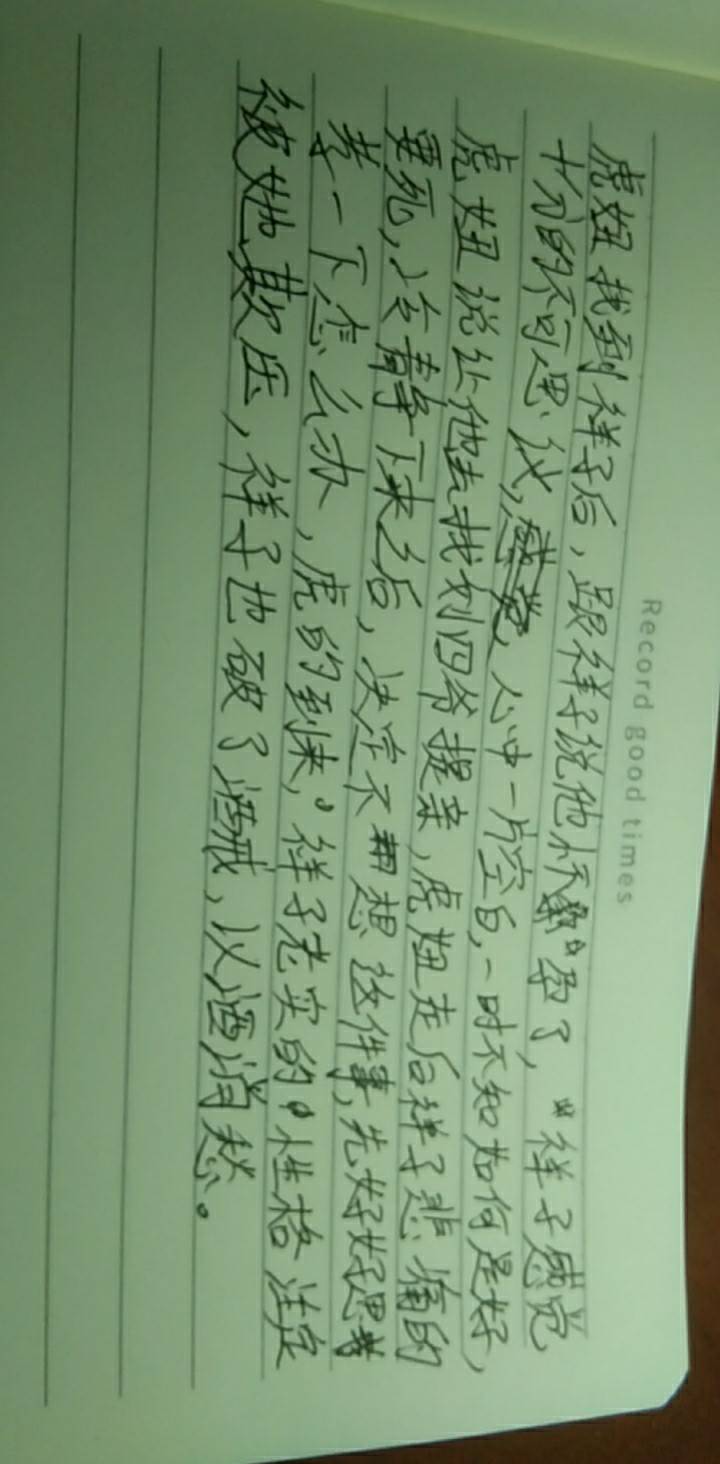 Record good times
虎妞找到祥子后，跟祥子说他怀孕了，"祥子感觉
十分的不可思议，心中一片空白，一时不知如何是好，
虎妞说让他去找刘四爷提亲，虎妞走后祥子悲痛的
要死，冷静下来之后，决定不想这件事，先好好思
考一下怎么办，虎的到来，祥子老实的性格注定
被她欺压，祥子也破了酒戒，以酒消愁。